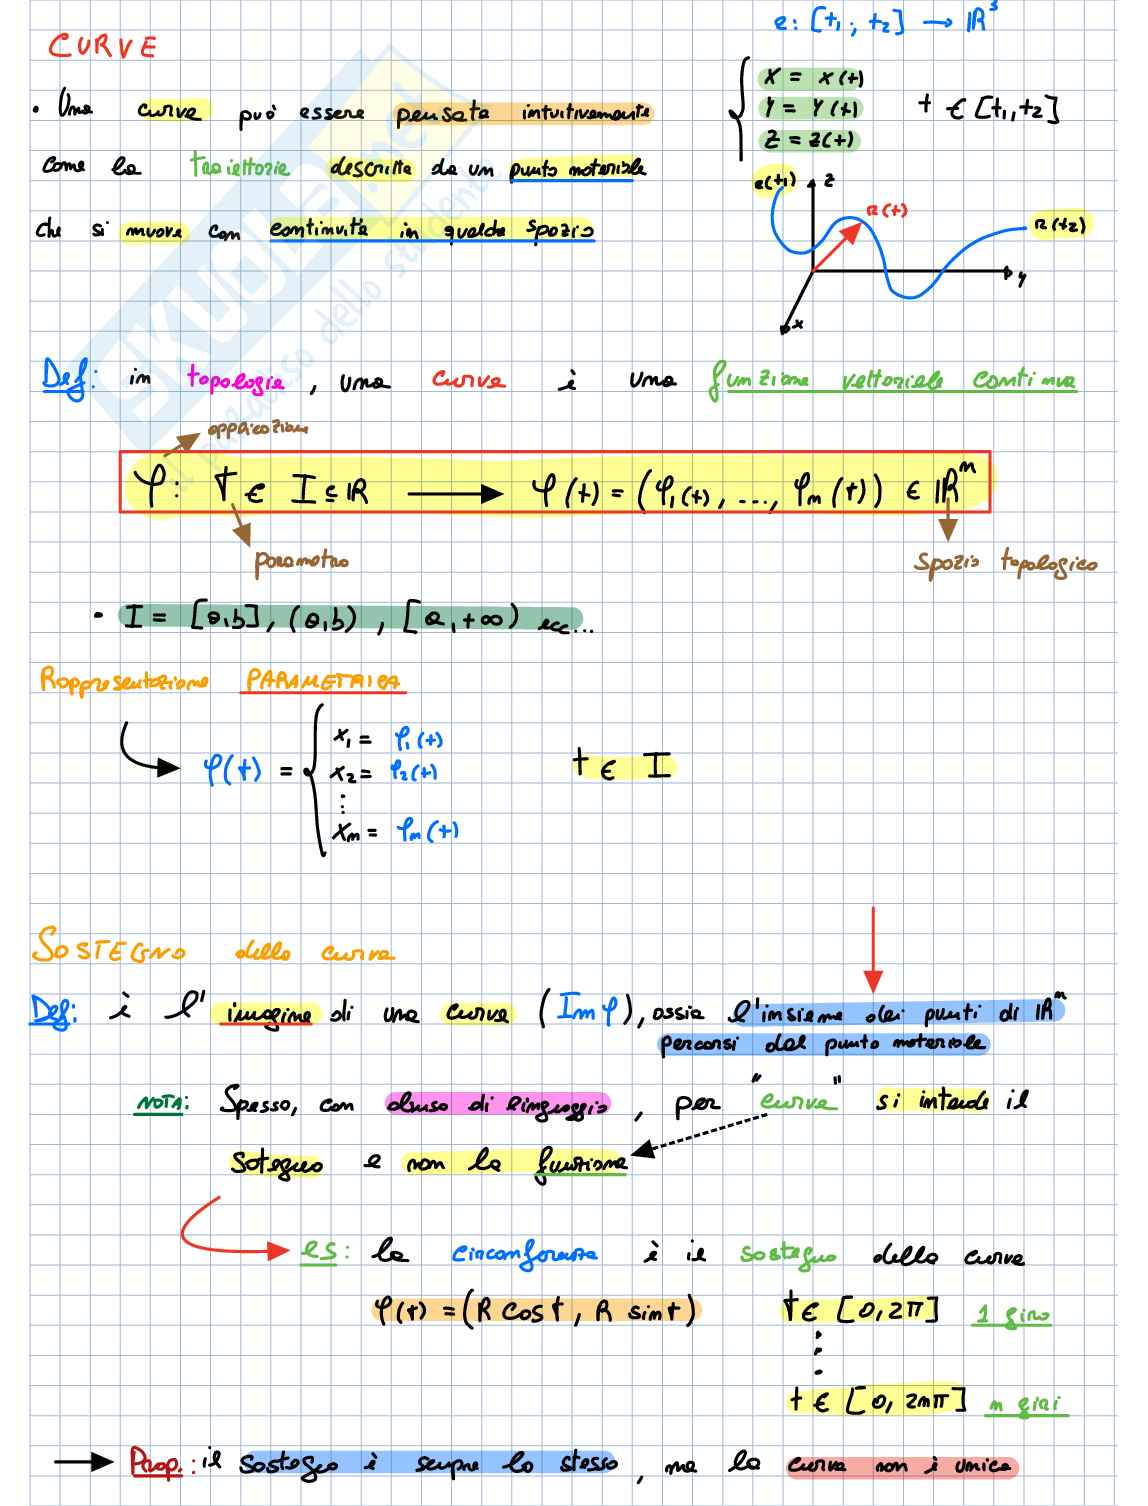 CURVE
e: [t₁; t₂] → ℝ³
• Una curva può essere pensata intuitivamente
come la traiettoria descritta da un punto materiale
che si muove con continuità in qualche spazio
X = x(t)
Y = Y(t)
Z = z(t)
t ∈ [t₁, t₂]
e(t₁)
z
R(t)
R(t₂)
y
x
SKUOLA.net
il paradiso dello studente
Def: in topologia, una curva è una funzione vettoriale continua
applicazione
φ: t ∈ I ⊆ ℝ → φ(t) = (φ₁(t), ..., φₙ(t)) ∈ ℝⁿ
parametro
Spazio topologico
• I = [a,b], (a,b), [a,+∞) ecc...
Rappresentazione PARAMETRICA
φ(t) = { x₁ = φ₁(t)
x₂ = φ₂(t)
⋮
xₙ = φₙ(t)
t ∈ I
SOSTEGNO della curva
Def: è l' imagine di una curva (Im φ), ossia l'insieme dei punti di ℝⁿ
percorsi dal punto materiale
NOTA: Spesso, con abuso di linguaggio, per "curva" si intende il
Sotegno e non la funzione
es: la circonferenza è il sostegno della curva
φ(t) = (R cos t, R sin t)
t ∈ [0, 2π] 1 giro
⋮
t ∈ [0, 2nπ] n giri
→ Prop.: il sostegno è sempre lo stesso, ma la curva non è unica